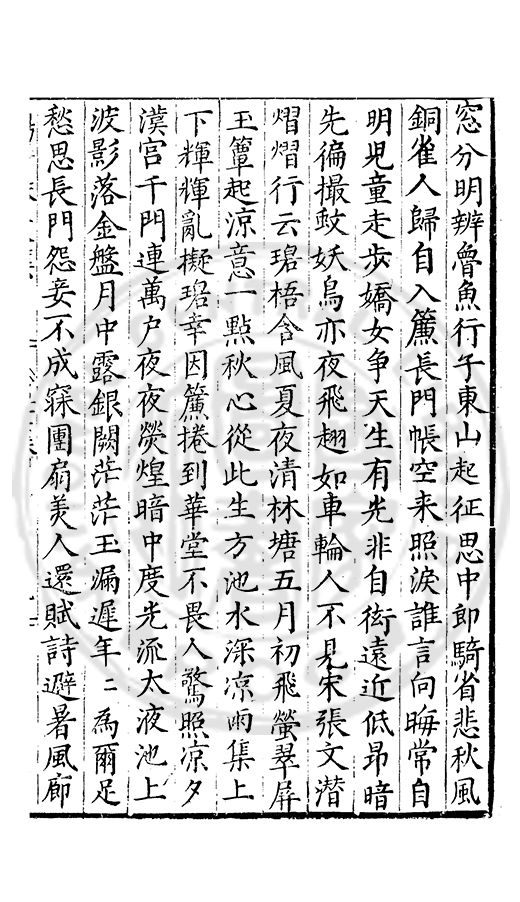 窓分明辨魯魚行子東山起征思中郎騎省悲秋風
銅雀人歸自入簾長門帳空来照淚誰言向晦常自
明児童走步嬌女争天生有光非自衒遠近低昂暗
先徧撮蚊妖鳥亦夜飛翅如車輪人不見宋張文潜
熠熠行云碧梧含風夏夜清林塘五月初飛螢翠屏
玉簟起涼意一點秋心從此生方池水深涼雨集上
下輝輝亂擬碧幸因簾捲到華堂不畏人驚照涼夕
漢宫千門連萬户夜夜熒煌暗中度光流太液池上
波影落金盤月中露銀闕茫茫玉漏遲年〻為爾足
愁思長門怨妾不成寐團扇美人還賦詩避暑風廊